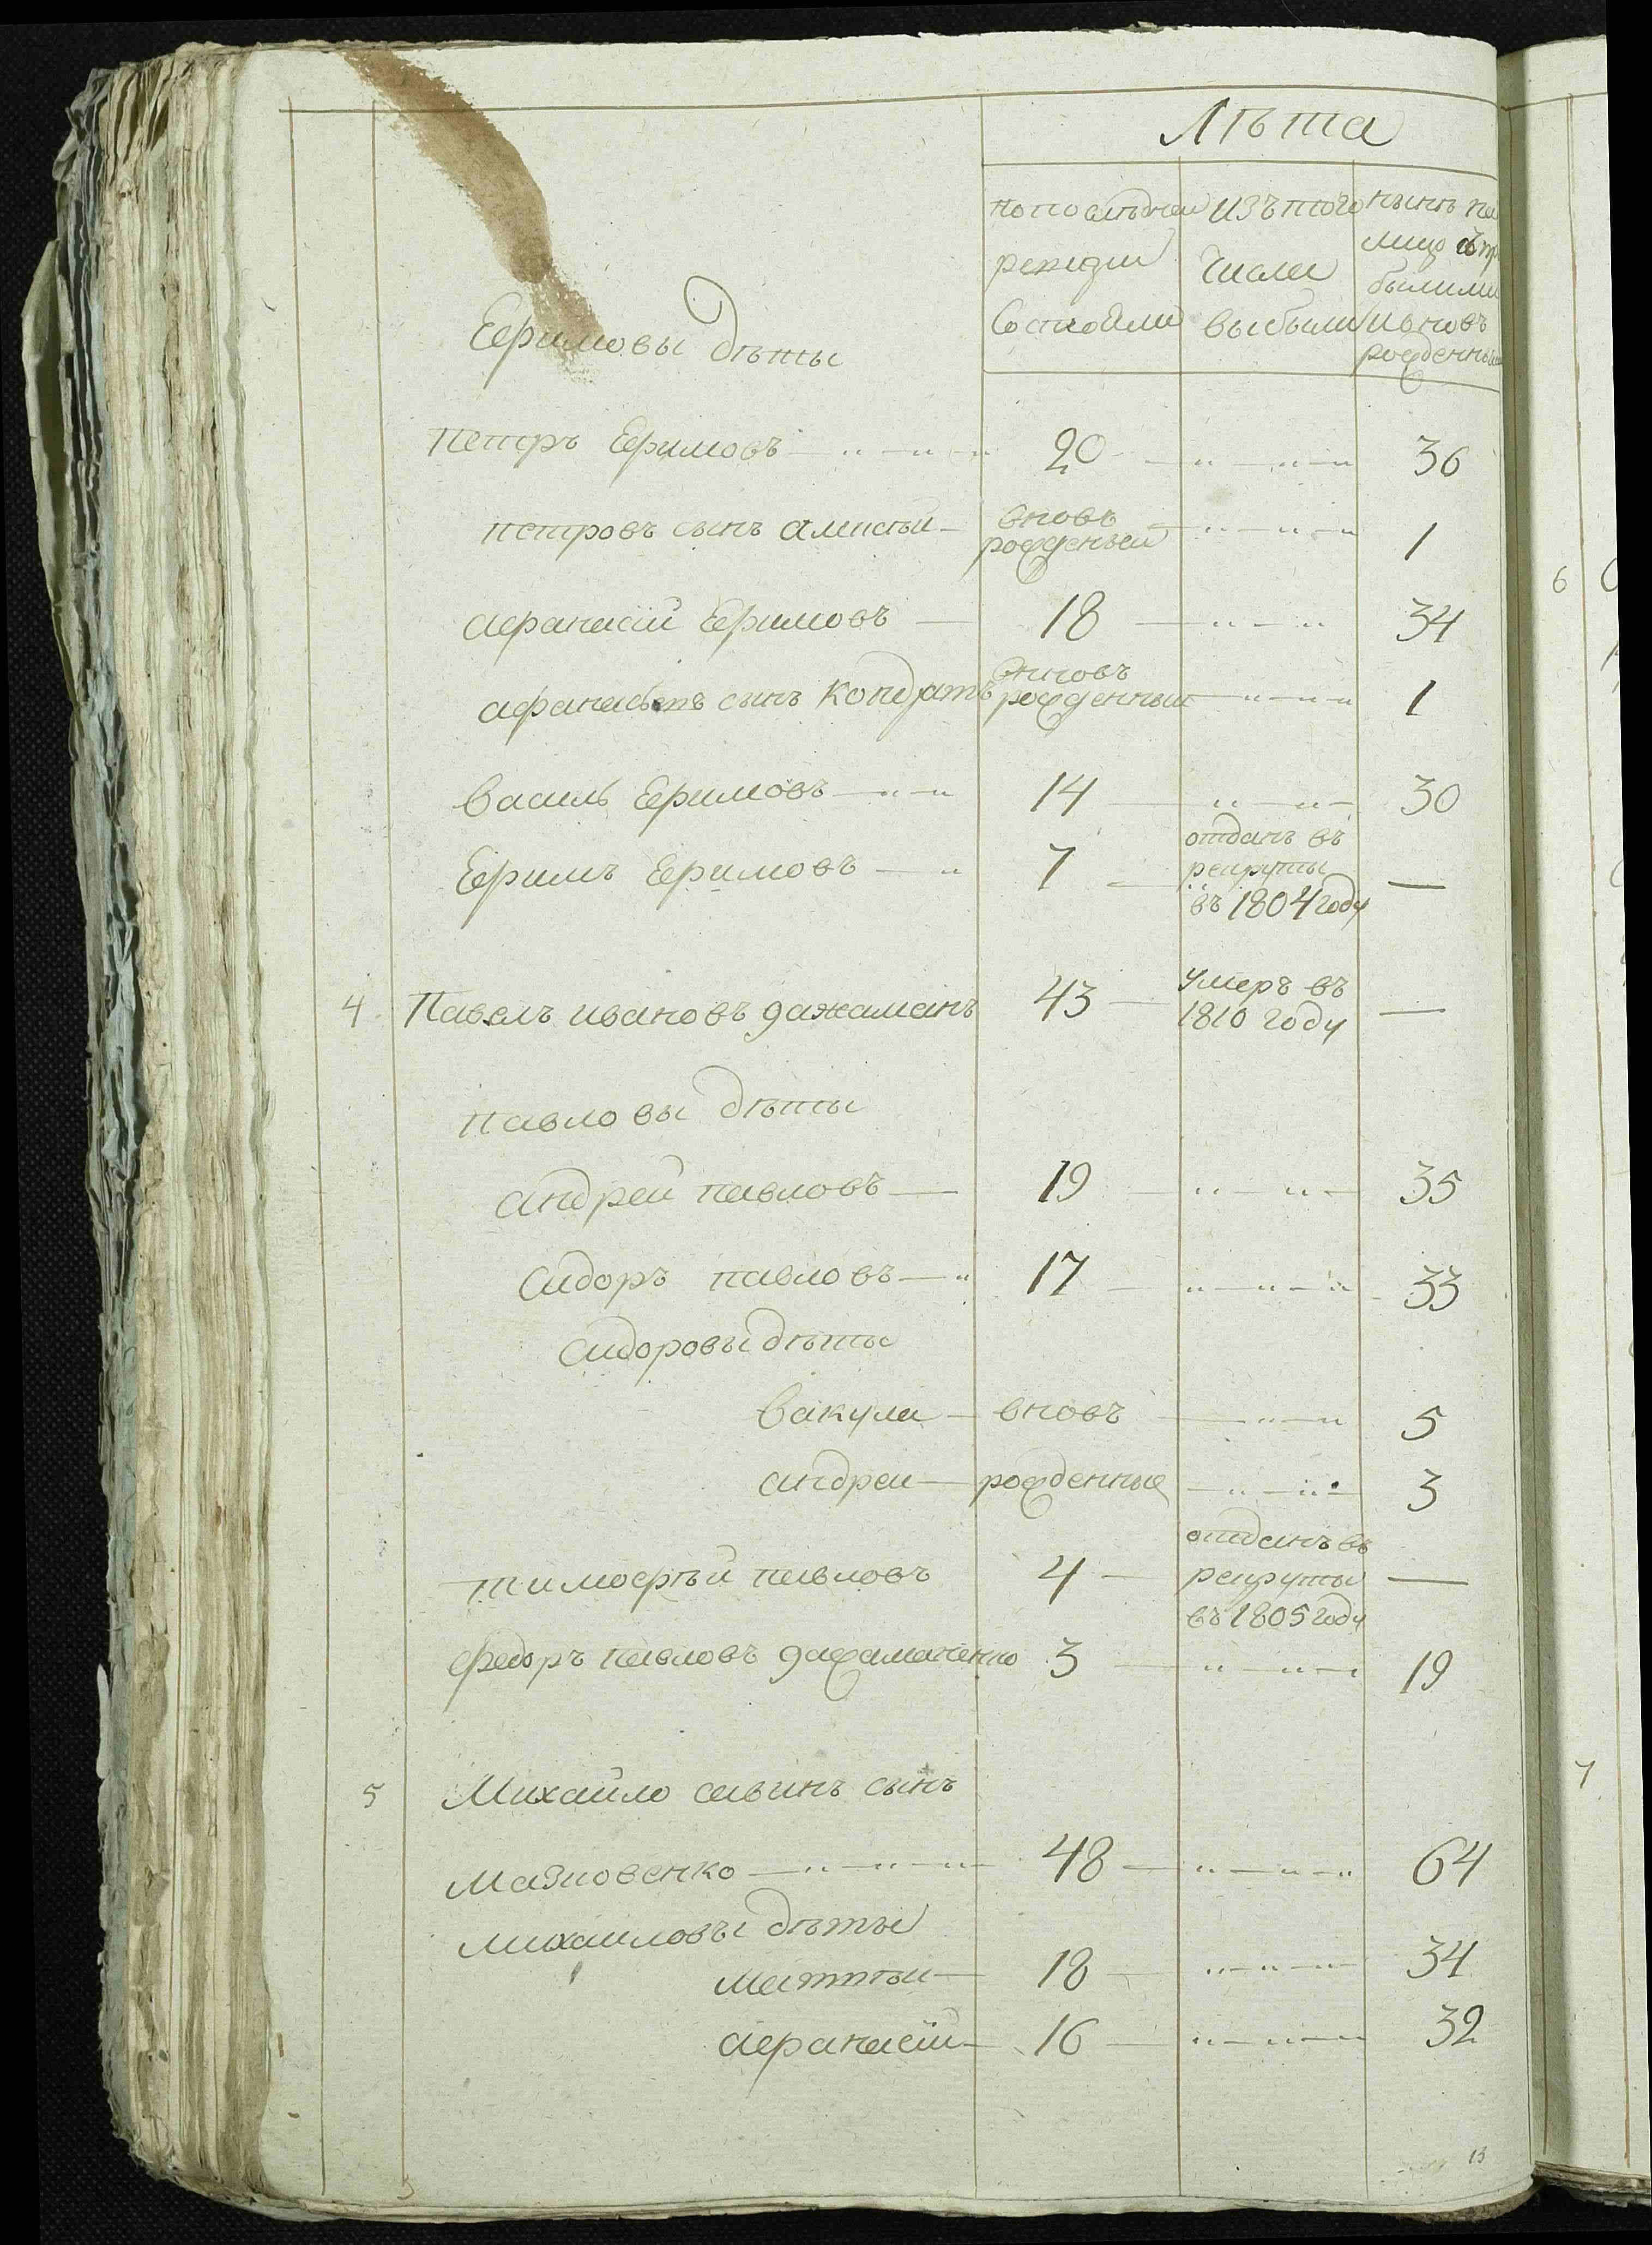 Лѣта
по послѣднеи изъ того нынѣ на
ревизіи числа лицо съ при
состояли выбыли былыми
и вновь
рожденными
Ефимовы дѣты
Петръ Ефимовъ 20 36
Петровъ сынъ Алексѣй вновь рожденый 1
Афанасій Ефимовъ 18 34
Афанасьевъ сынъ Кондратъ вновь рожденный 1
Василь Ефимовъ 14 30
Ефимъ Ефимовъ 7 отданъ въ рекруты въ 1804 году —
4 Павелъ Ивановъ Дажаманъ 43 умеръ въ 1810 году —
Павловы дѣты
Андрей Павловъ 19 35
Сидоръ Павловъ 17 33
Сидоровы дѣты
Вакула вновь 5
Андрей рожденные 3
Тимофѣй Павловъ 4 отданъ въ рекруты въ 1805 году —
Федоръ Павловъ 3 19
5 Михайло Савинъ сынъ
48 64
Михаиловы дѣты
Матѣй 18 34
Афанасій 16 32
13
6
7